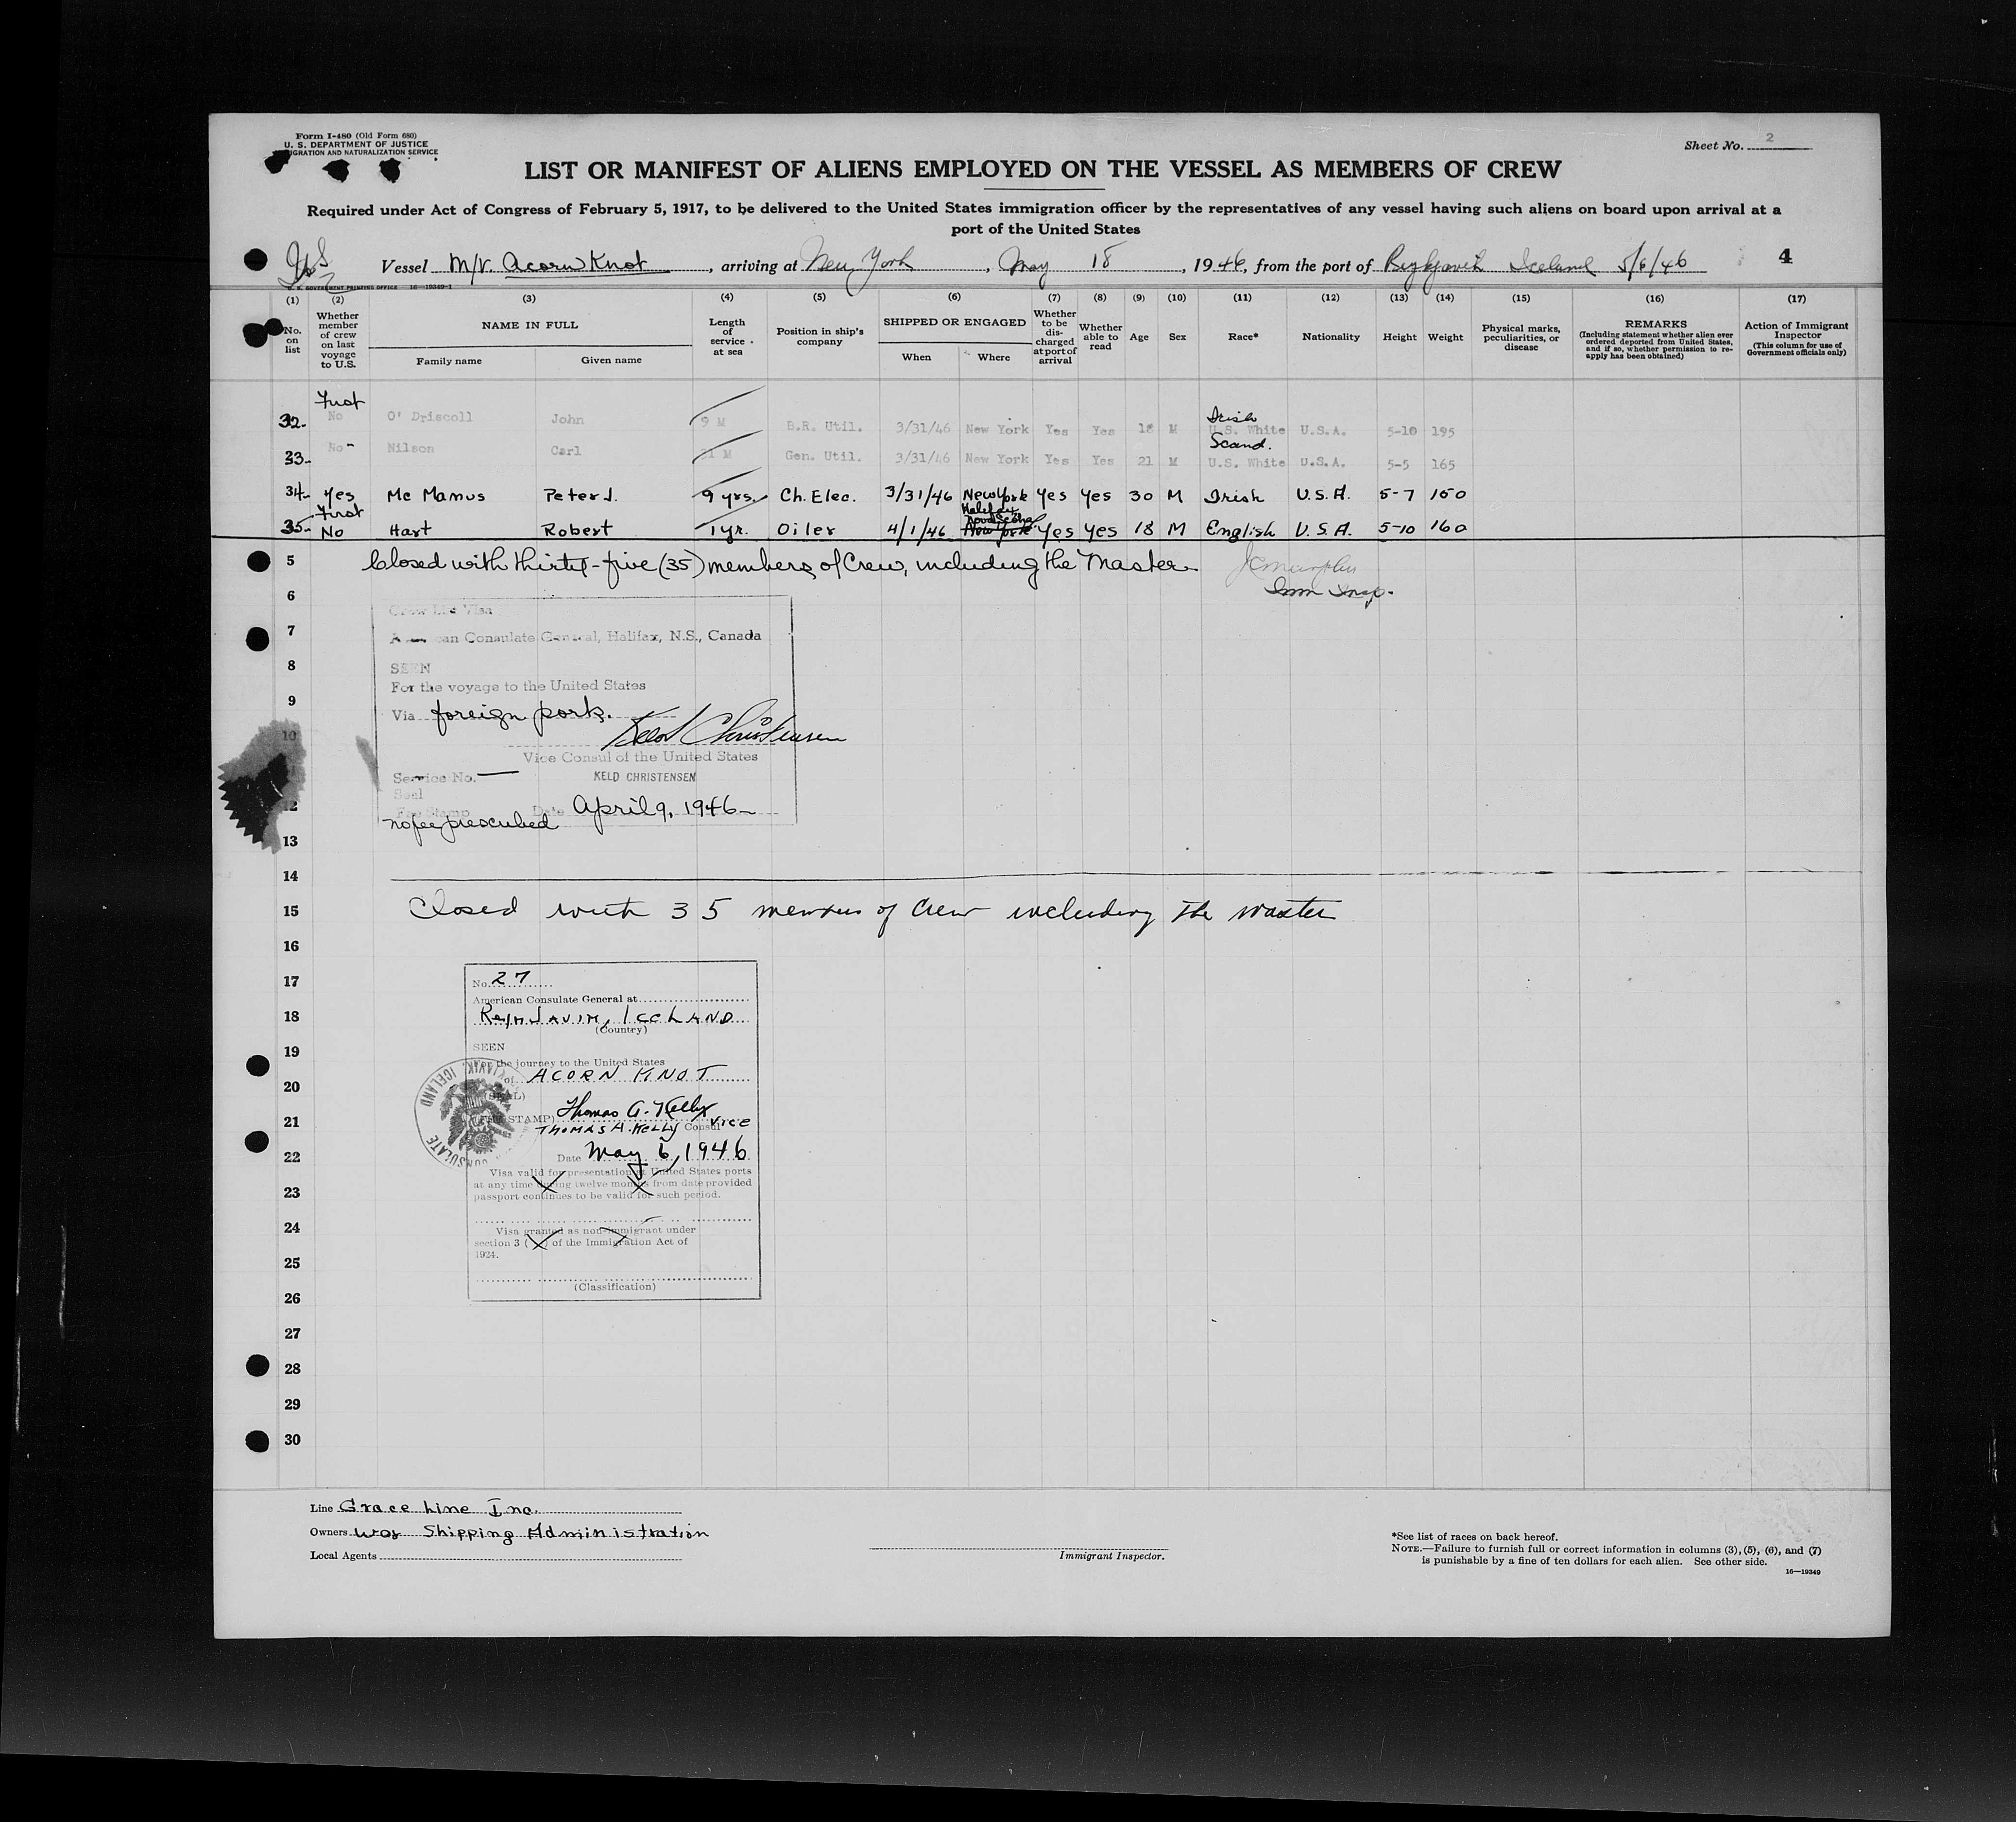 Form I-480 (Old Form 680)
U. S. DEPARTMENT OF JUSTICE
IGRATION AND NATURALIZATION SERVICE
Sheet No. 2
LIST OR MANIFEST OF ALIENS EMPLOYED ON THE VESSEL AS MEMBERS OF CREW
Required under Act of Congress of February 5, 1917, to be delivered to the United States immigration officer by the representatives of any vessel having such aliens on board upon arrival at a
port of the United States
Vessel M/V. Acorn Knot, arriving at New York, May 18, 1946, from the port of Reykjavik Iceland 5/6/46 4
U. S. GOVERNMENT PRINTING OFFICE 16—19349-1
(1) (2) (3) (4) (5) (6) (7) (8) (9) (10) (11) (12) (13) (14) (15) (16) (17)
No. on list
Whether member of crew on last voyage to U.S.
NAME IN FULL
Family name
Given name
Length of service at sea
Position in ship's company
SHIPPED OR ENGAGED
When
Where
Whether to be discharged at port of arrival
Whether able to read
Age
Sex
Race*
Nationality
Height
Weight
Physical marks, peculiarities, or disease
REMARKS
(Including statement whether alien ever ordered deported from United States, and if so, whether permission to re-apply has been obtained)
Action of Immigrant Inspector
(This column for use of Government officials only)
First Irish
32. No O' Driscoll John 9 M B.R. Util. 3/31/46 New York Yes Yes 18 M U.S. White U.S.A. 5-10 195
Scand.
33. No Nilson Carl 21 M Gen. Util. 3/31/46 New York Yes Yes 21 M U.S. White U.S.A. 5-5 165
34. Yes Mc Manus Peter J. 9 yrs. Ch. Elec. 3/31/46 New York Yes Yes 30 M Irish U.S.A. 5-7 150
First Halifax Nova Scotia
35. No Hart Robert 1 yr. Oiler 4/1/46 New York Yes Yes 18 M English U.S.A. 5-10 160
5 Closed with thirty-five (35) members of Crew, including the Master
6 Imm Insp.
Crew List Visa
7 American Consulate General, Halifax, N.S., Canada
8 SEEN
For the voyage to the United States
9 Via foreign ports.
10 Keld Christensen
Vice Consul of the United States
11 Service No. — KELD CHRISTENSEN
Seal
12 Fee Stamp Date April 9, 1946
no fee prescribed
13
14
15 Closed with 35 members of Crew including the master
16
17 No. 27
American Consulate General at
18 Reykjavik, Iceland
(Country)
19 SEEN
the journey to the United States
20 of ACORN KNOT
(SEAL)
21 (FEE STAMP) Thomas A. Kelly
THOMAS A. KELLY Vice Consul
22 Date May 6, 1946
Visa valid for presentation at United States ports
23 at any time during twelve months from date provided
passport continues to be valid for such period.
24 Visa granted as non-immigrant under
section 3 ( ) of the Immigration Act of
1924.
25
(Classification)
26
27
28
29
30
Line Grace Line Inc.
Owners War Shipping Administration
Local Agents
Immigrant Inspector.
*See list of races on back hereof.
NOTE.—Failure to furnish full or correct information in columns (3), (5), (6), and (7)
is punishable by a fine of ten dollars for each alien. See other side.
16—19349